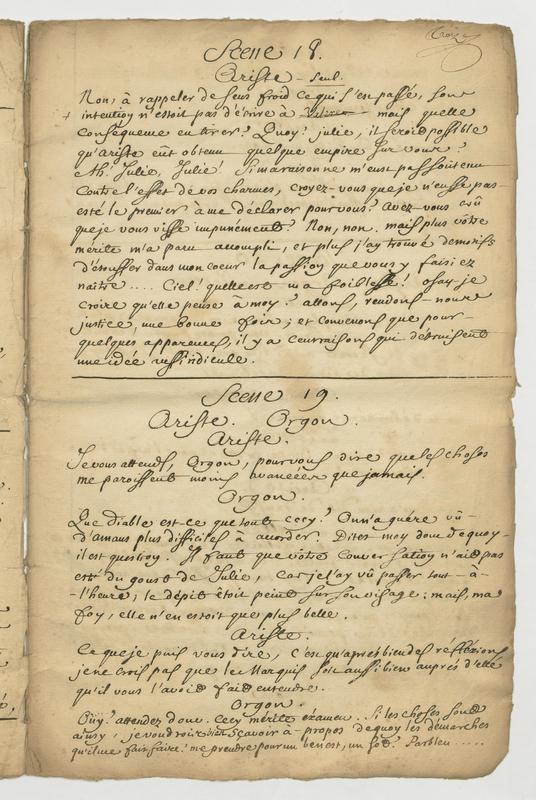 Scene 18.
Ariste - seul.
Non, à rappeler de sens froid ce qui s'est passé, son
intention n'estoit pas d'écrire à Valere mais quelle
conséquence en tirer? Quoy! julie, il seroit possible
qu'ariste eût obtenu quelque empire sur vous?
Ah! Julie, Julie! Si ma raison ne m'eust pas soutenu
contre l'effet de vos charmes, croyez-vous que je n'eusse pas
esté le premier à me déclarer pour vous? Avez-vous crû
que je vous visse impunement? Non, non. mais plus vôtre
mérite m'a paru accompli, et plus j'ay trouvé de motifs
d'étouffer dans mon coeur la passion que vous y faisiez
naître .... Ciel! quelle est ma foiblesse! osay-je
croire qu'elle pense à moy? allons, rendons-nous
justice, une bonne fois; et convenons que pour
quelques apparences, il y a cent raisons qui détruisent
une idée aussi ridicule.
Scene 19.
Ariste. Orgon.
Ariste.
Je vous attends, Orgon, pour vous dire que les choses
me paroissent moins avancées que jamais.
Orgon.
Que Diable est-ce que tout cecy? On n'a guére vû
d'amans plus difficiles à accorder. Dites moy donc dequoy
il est question. Il faut que vôtre conversation n'ait pas
esté du goust de Julie, car je l'ay vû passer tout-à-
l'heure; le dépit étoit peint sur son visage: mais, ma
foy, elle n'en estoit que plus belle.
Ariste.
Ce que je puis vous dire, c'est qu'après bien des réfléxions
je ne crois pas que le Marquis soit aussi bien auprés d'elle
qu'il vous l'avoit fait entendre.
Orgon.
Oüy? attendez donc. cecy mérite éxamen.. Si les choses sont
ainsy, je voudrois bien sçavoir à-propos dequoy les démarches
qu'il me fait faire! me prendre pour un benest, un sot? Parbleu .....